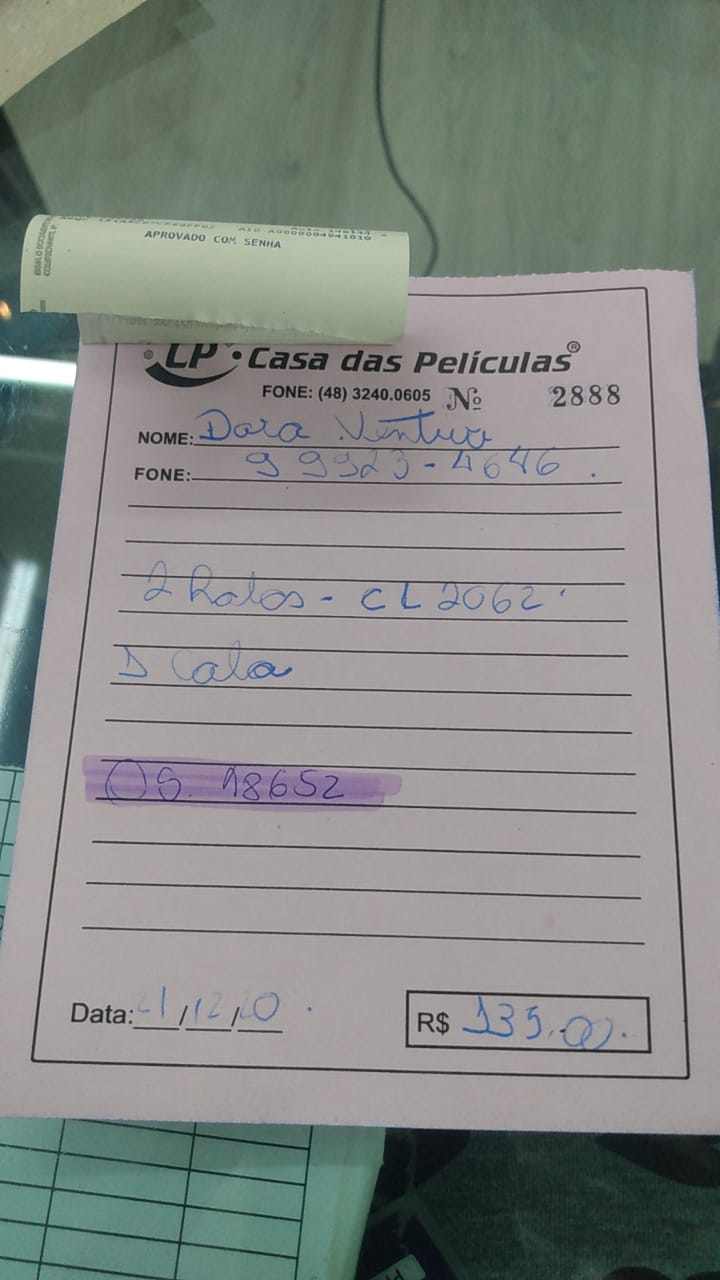 APROVADO COM SENHA
LP • Casa das Películas®
FONE: (48) 3240.0605 Nº 2888
NOME: Dora Ventura
FONE: 9 9923-4646.
2 Rolos - CL 2062.
D Cola
OS. 18652
Data: 21/12/20.
R$ 135,00.